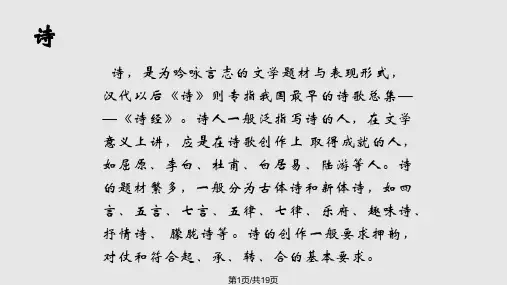 诗
诗，是为吟咏言志的文学题材与表现形式，
汉代以后《诗》则专指我国最早的诗歌总集—
—《诗经》。诗人一般泛指写诗的人，在文学
意义上讲，应是在诗歌创作上 取得成就的人，
如屈原、李白、杜甫、白居易、陆游等人。诗
的题材繁多，一般分为古体诗和新体诗，如四
言、五言、七言、五律、七律、乐府、趣味诗、
抒情诗、 朦胧诗等。诗的创作一般要求押韵，
对仗和符合起、承、转、合的基本要求。
第1页/共19页